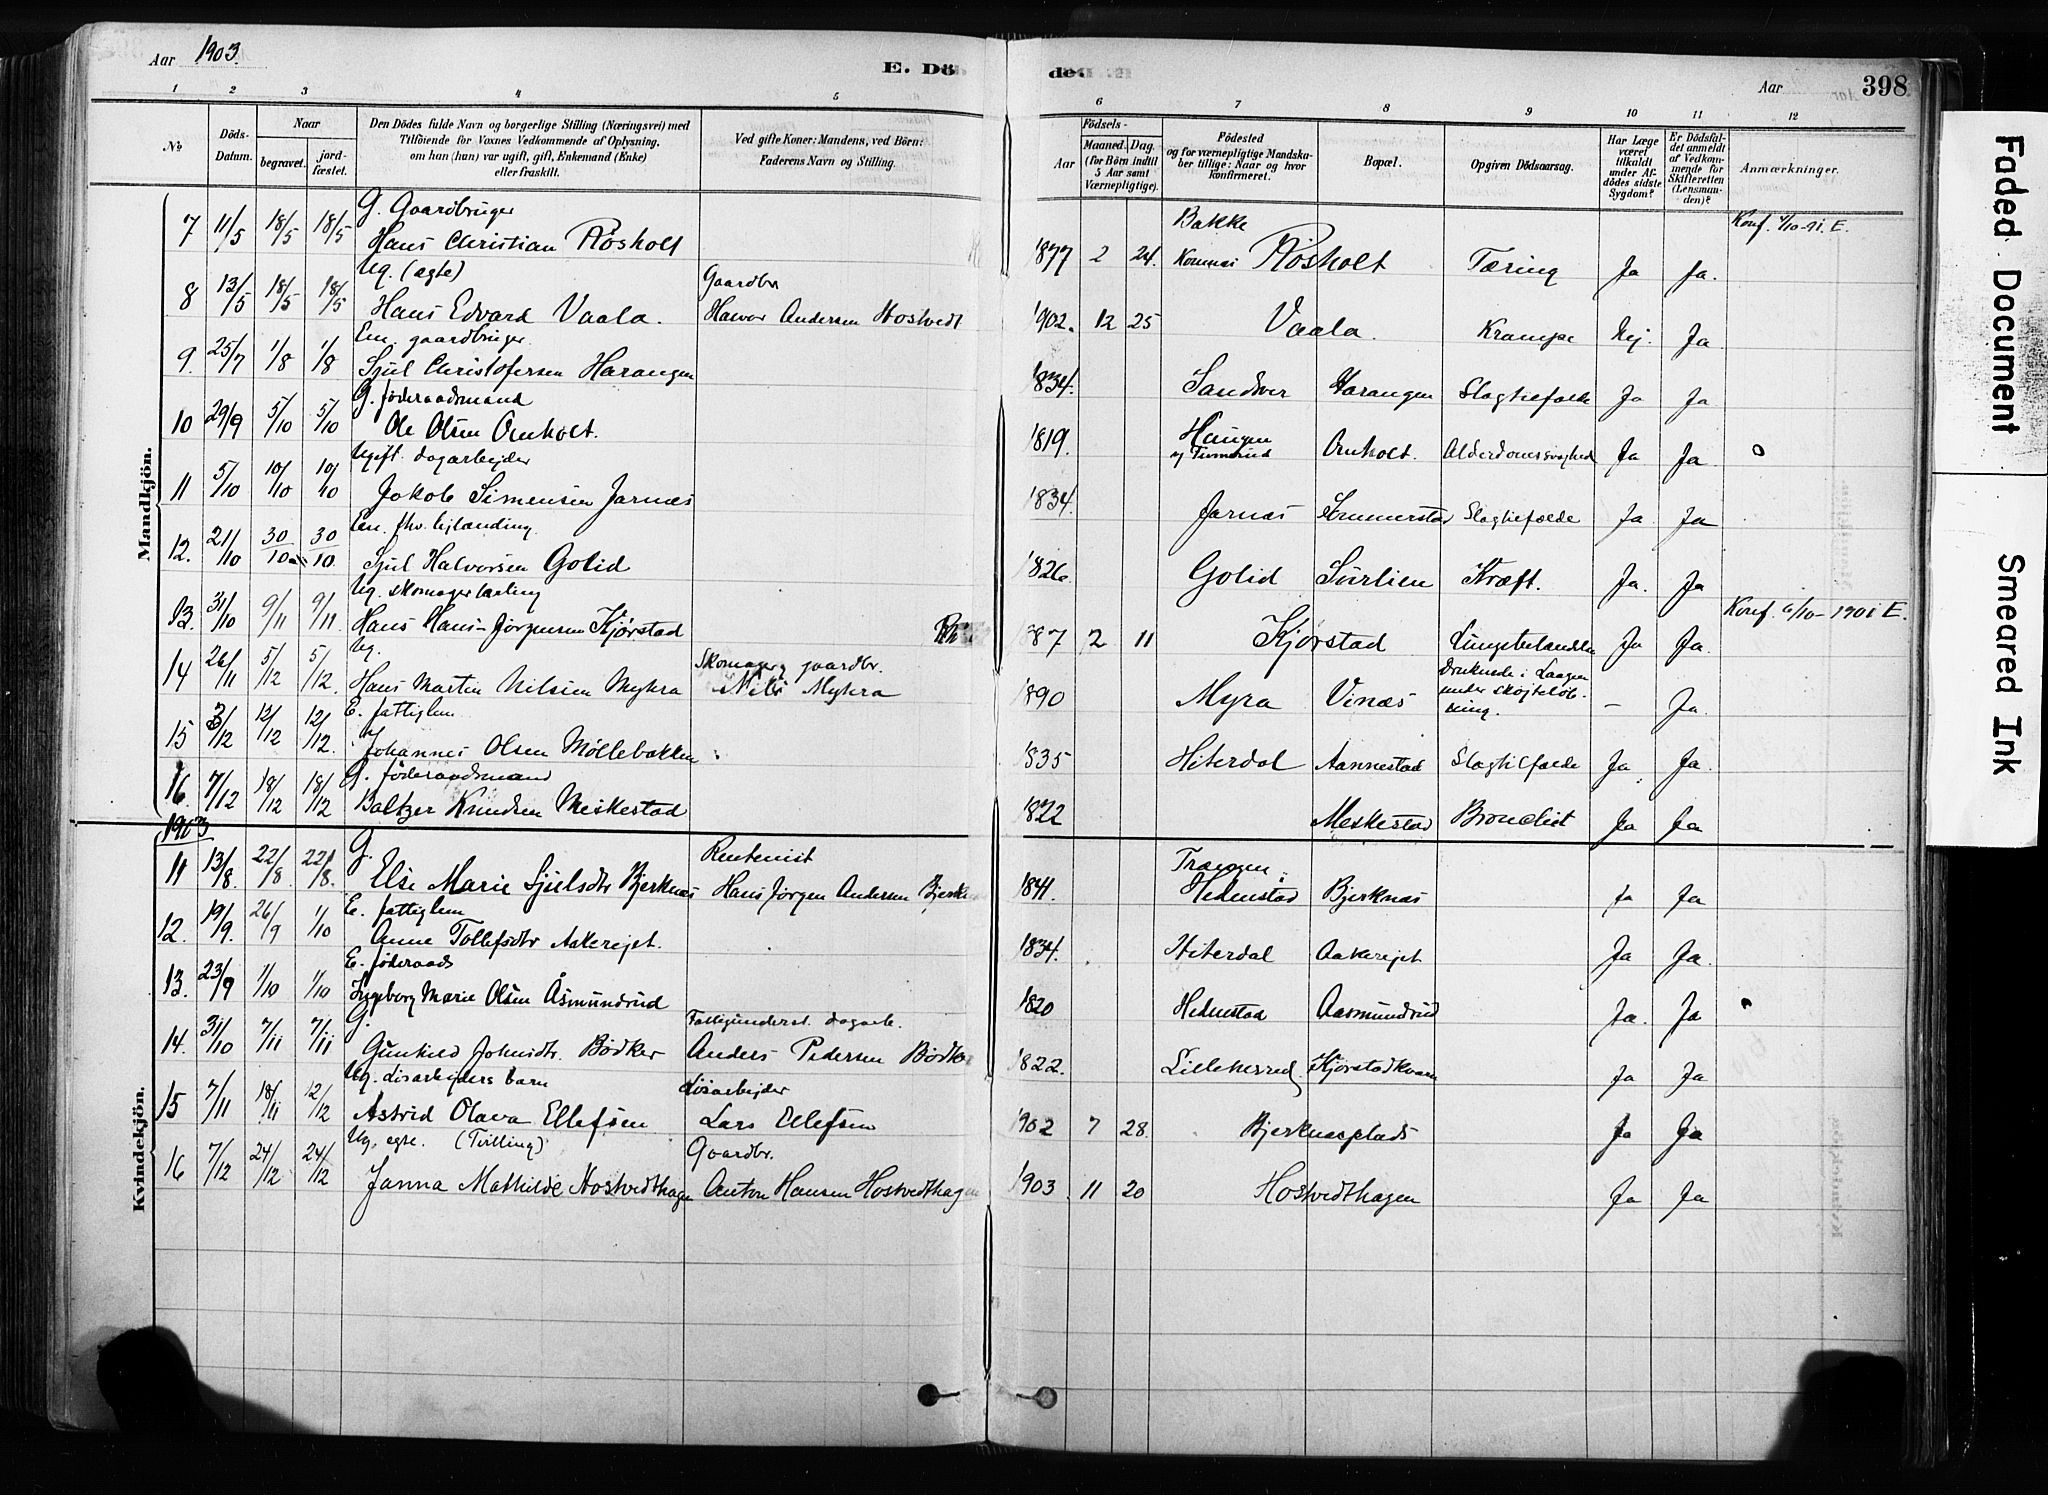 Aar 1903.
E. Dö
de
Aar
398
1 2 3 4 5 6 7 8 9 10 11 12
No
Döds-Datum.
Naar
begravet.
jord-fæstet.
Den Dödes fulde Navn og borgerlige Stilling (Næringsvei) med
Tilföiende for Voxnes Vedkommende af Oplysning,
om han (hun) var ugift, gift, Enkemand (Enke)
eller fraskilt.
Ved gifte Koner: Mandens, ved Börn:
Faderens Navn og Stilling.
Födsels-
Aar
Maaned. Dag.
(for Börn indtil
5 Aar samt
Værnepligtige).
Födested
og for værnepligtige Mandska-
ber tillige: Naar og hvor
konfirmeret.
Bopæl.
Opgiven Dödsaarsag.
Har Læge
været
tilkaldt
under Af-
dödes sidste
Sygdom?
Er Dödsfal-
det anmeldt
af Vedkom-
mende for
Skifteretten
(Lensman-
den)?
Anmærkninger.
Mandkjön.
G. Gaardbruger Bakke Konf. 4/10-91. E.
7 11/5 18/5 18/5 Hans Christian Røsholt 1877 2 24. Komnæs Røsholt Tæring Ja Ja.
Ug. (ægte) Gaardbr
8 13/5 18/5 18/5 Hans Edvard Vaala. Halvor Andersen Hostvedt 1902. 12 25 Vaala. Krampe Nej. Ja
Em. gaardbruger.
9. 25/7 1/8 1/8 Sjul Christofersen Harangen 1834. Sandsver Harangen Slagtilfælde Ja Ja
G. føderaadsmand
10 29/9 5/10 5/10 Ole Olsen Ornholt. 1819. Haugen Ornholt. Alderdomssvaghed Ja Ja
Ugift. dagarbejder
11 5/10 10/10 10/10 Jakob Simensen Jarnæs 1834. Jarnæs Slagtilfælde Ja. Ja
Em. fhv. lejlænding
12. 21/10 30/10 30/10. Sjul Halvorsen Golid 1826. Golid Sørlien Kræft. Ja. Ja
Ug. skomagerlærling Konf. 6/10-1901 E.
13. 31/10 9/11 9/11. Hans Hans-Jørgensen Kjørstad 887 2 11 Kjørstad Ja Ja.
Ug. Skomager og gaardbr.
14 26/11 5/12 5/12. Hans Martin Nilsen Myhra Nils Myhra 1890 Myra Vinæs Druknede i Laagen
under skøjteløb-
ning. – Ja.
E. fattiglem
15 3/12 12/12 12/12. Johannes Olsen Møllebakken 1835 Hiterdal Aannestad Slagtilfælde Ja Ja.
G. føderaadsmand
16. 7/12 18/12 18/12 Baltzer Knudsen Meskestad 1822 Meskestad Bronchit Ja Ja
1903
Kvindekjön.
G. Rentenist
11 13/8. 22/8. 22/8. Else Marie Sjulsdtr Bjerknæs Hans Jørgen Andersen Bjerkn 1841. Hedenstad Bjerknæs Ja Ja
E. fattiglem
12. 19/9. 26/9 1/10 Anne Tollefsdtr Aakerejet. 1834. Hiterdal Aakerejet Ja Ja.
E. føderaads
13. 23/9 1/10 1/10 Ingeborg Marie Olsen Åsmundrud 1820 Hedenstad Aasmundrud Ja. Ja
G. Fattigunderst. dagarb.
14. 31/10 7/11 7/11 Gunhild Johnsdtr. Bødker Anders Pedersen Bødk 1822. Lilleherred Kjørstadkværn Ja Ja
Ug. Løsarbejders barn Løsarbejder
15 7/11 18/11 12/12 Astrid Olava Ellefsen Lars Ellefsen 1902 7 28. Bjerknæsplads Ja Ja
Ug. ægte. (Tvilling) Gaardbr.
16 7/12 24/12 24/12 Janna Mathilde Hostvedthagen Anton Hansen Hostvedthagen 1903. 11 20 Hostvedthagen Ja Ja
Faded Document
Smeared Ink